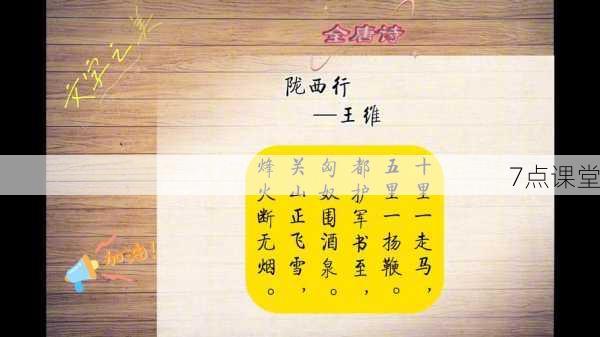 文学之美
全唐诗
陇西行
—王维
十里一走马，
五里一扬鞭。
都护军书至，
匈奴围酒泉。
关山正飞雪，
烽火断无烟。
加油！
7点课堂